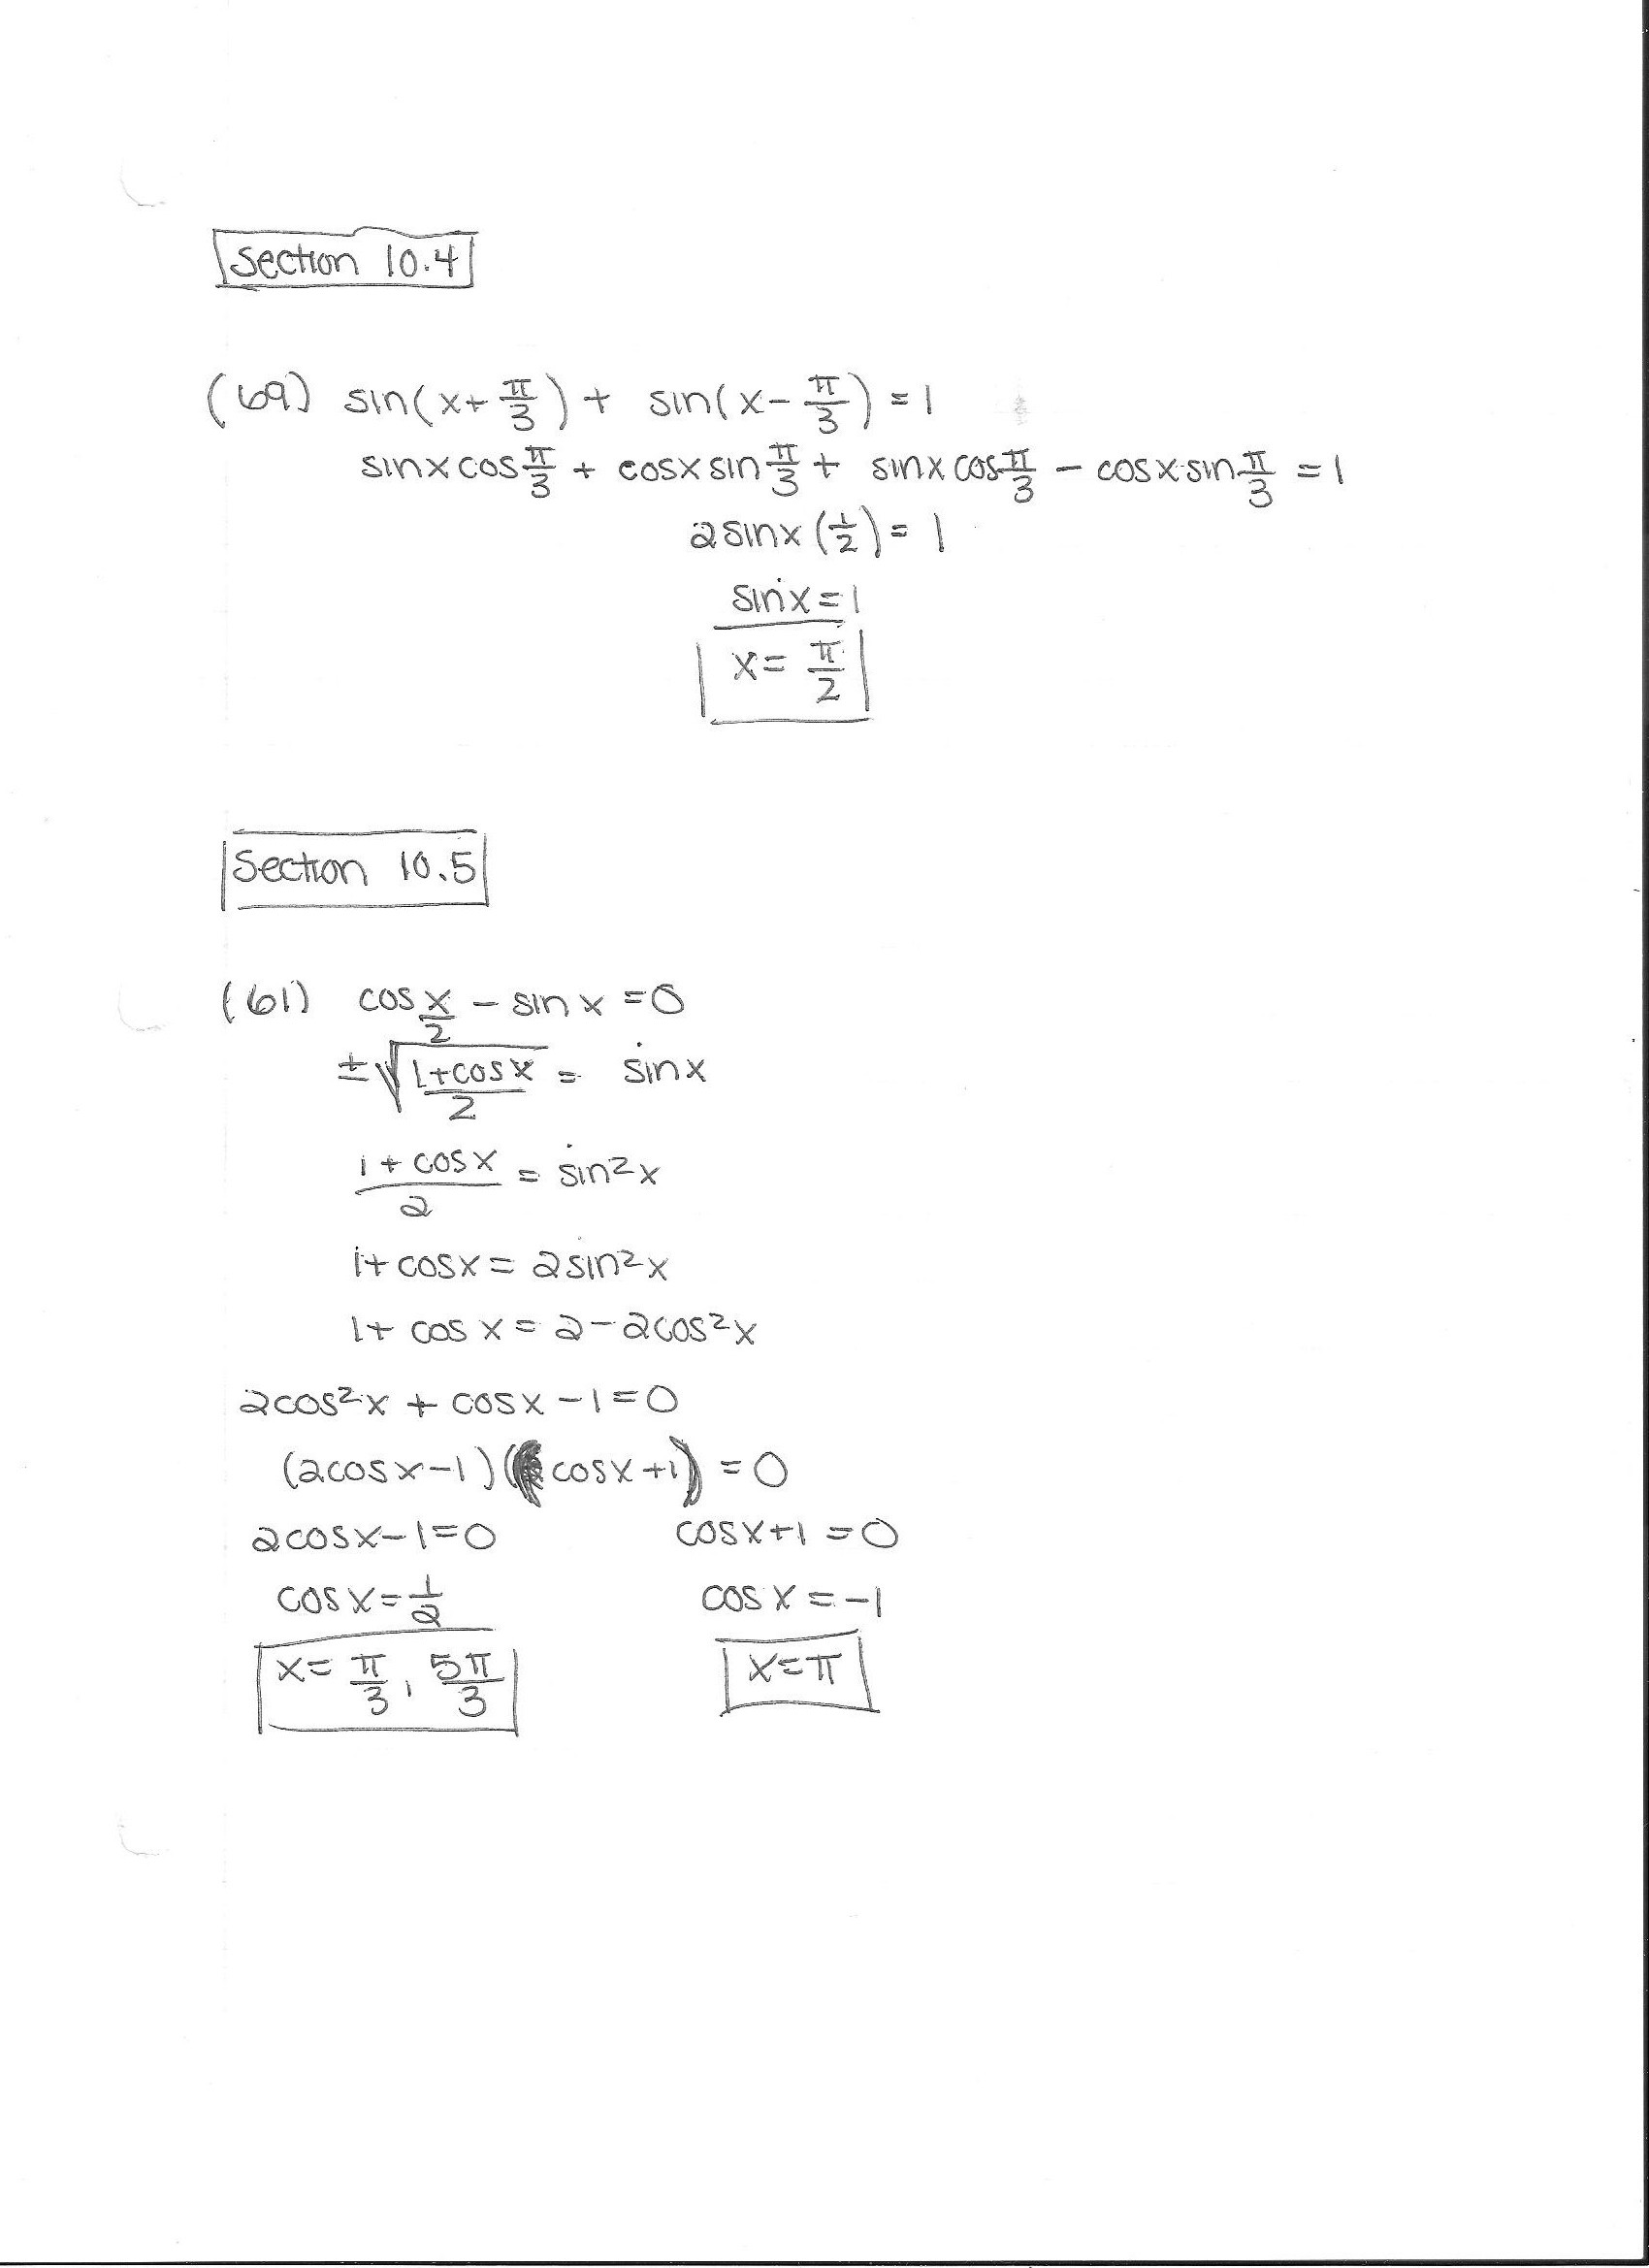 Section 10.4
(69) sin(x+ π/3) + sin(x- π/3) = 1
sinx cos π/3 + cosx sin π/3 + sinx cos π/3 - cosx sin π/3 = 1
2sinx (1/2) = 1
sinx = 1
x = π/2
Section 10.5
(61) cos x/2 - sin x = 0
±√((1+cosx)/2) = sinx
(1+cosx)/2 = sin²x
1+cosx = 2sin²x
1+ cos x = 2-2cos²x
2cos²x + cosx -1=0
(2cosx-1)(cosx+1) = 0
2cosx-1=0 cosx+1 = 0
cosx = 1/2 cosx = -1
x = π/3, 5π/3 x = π